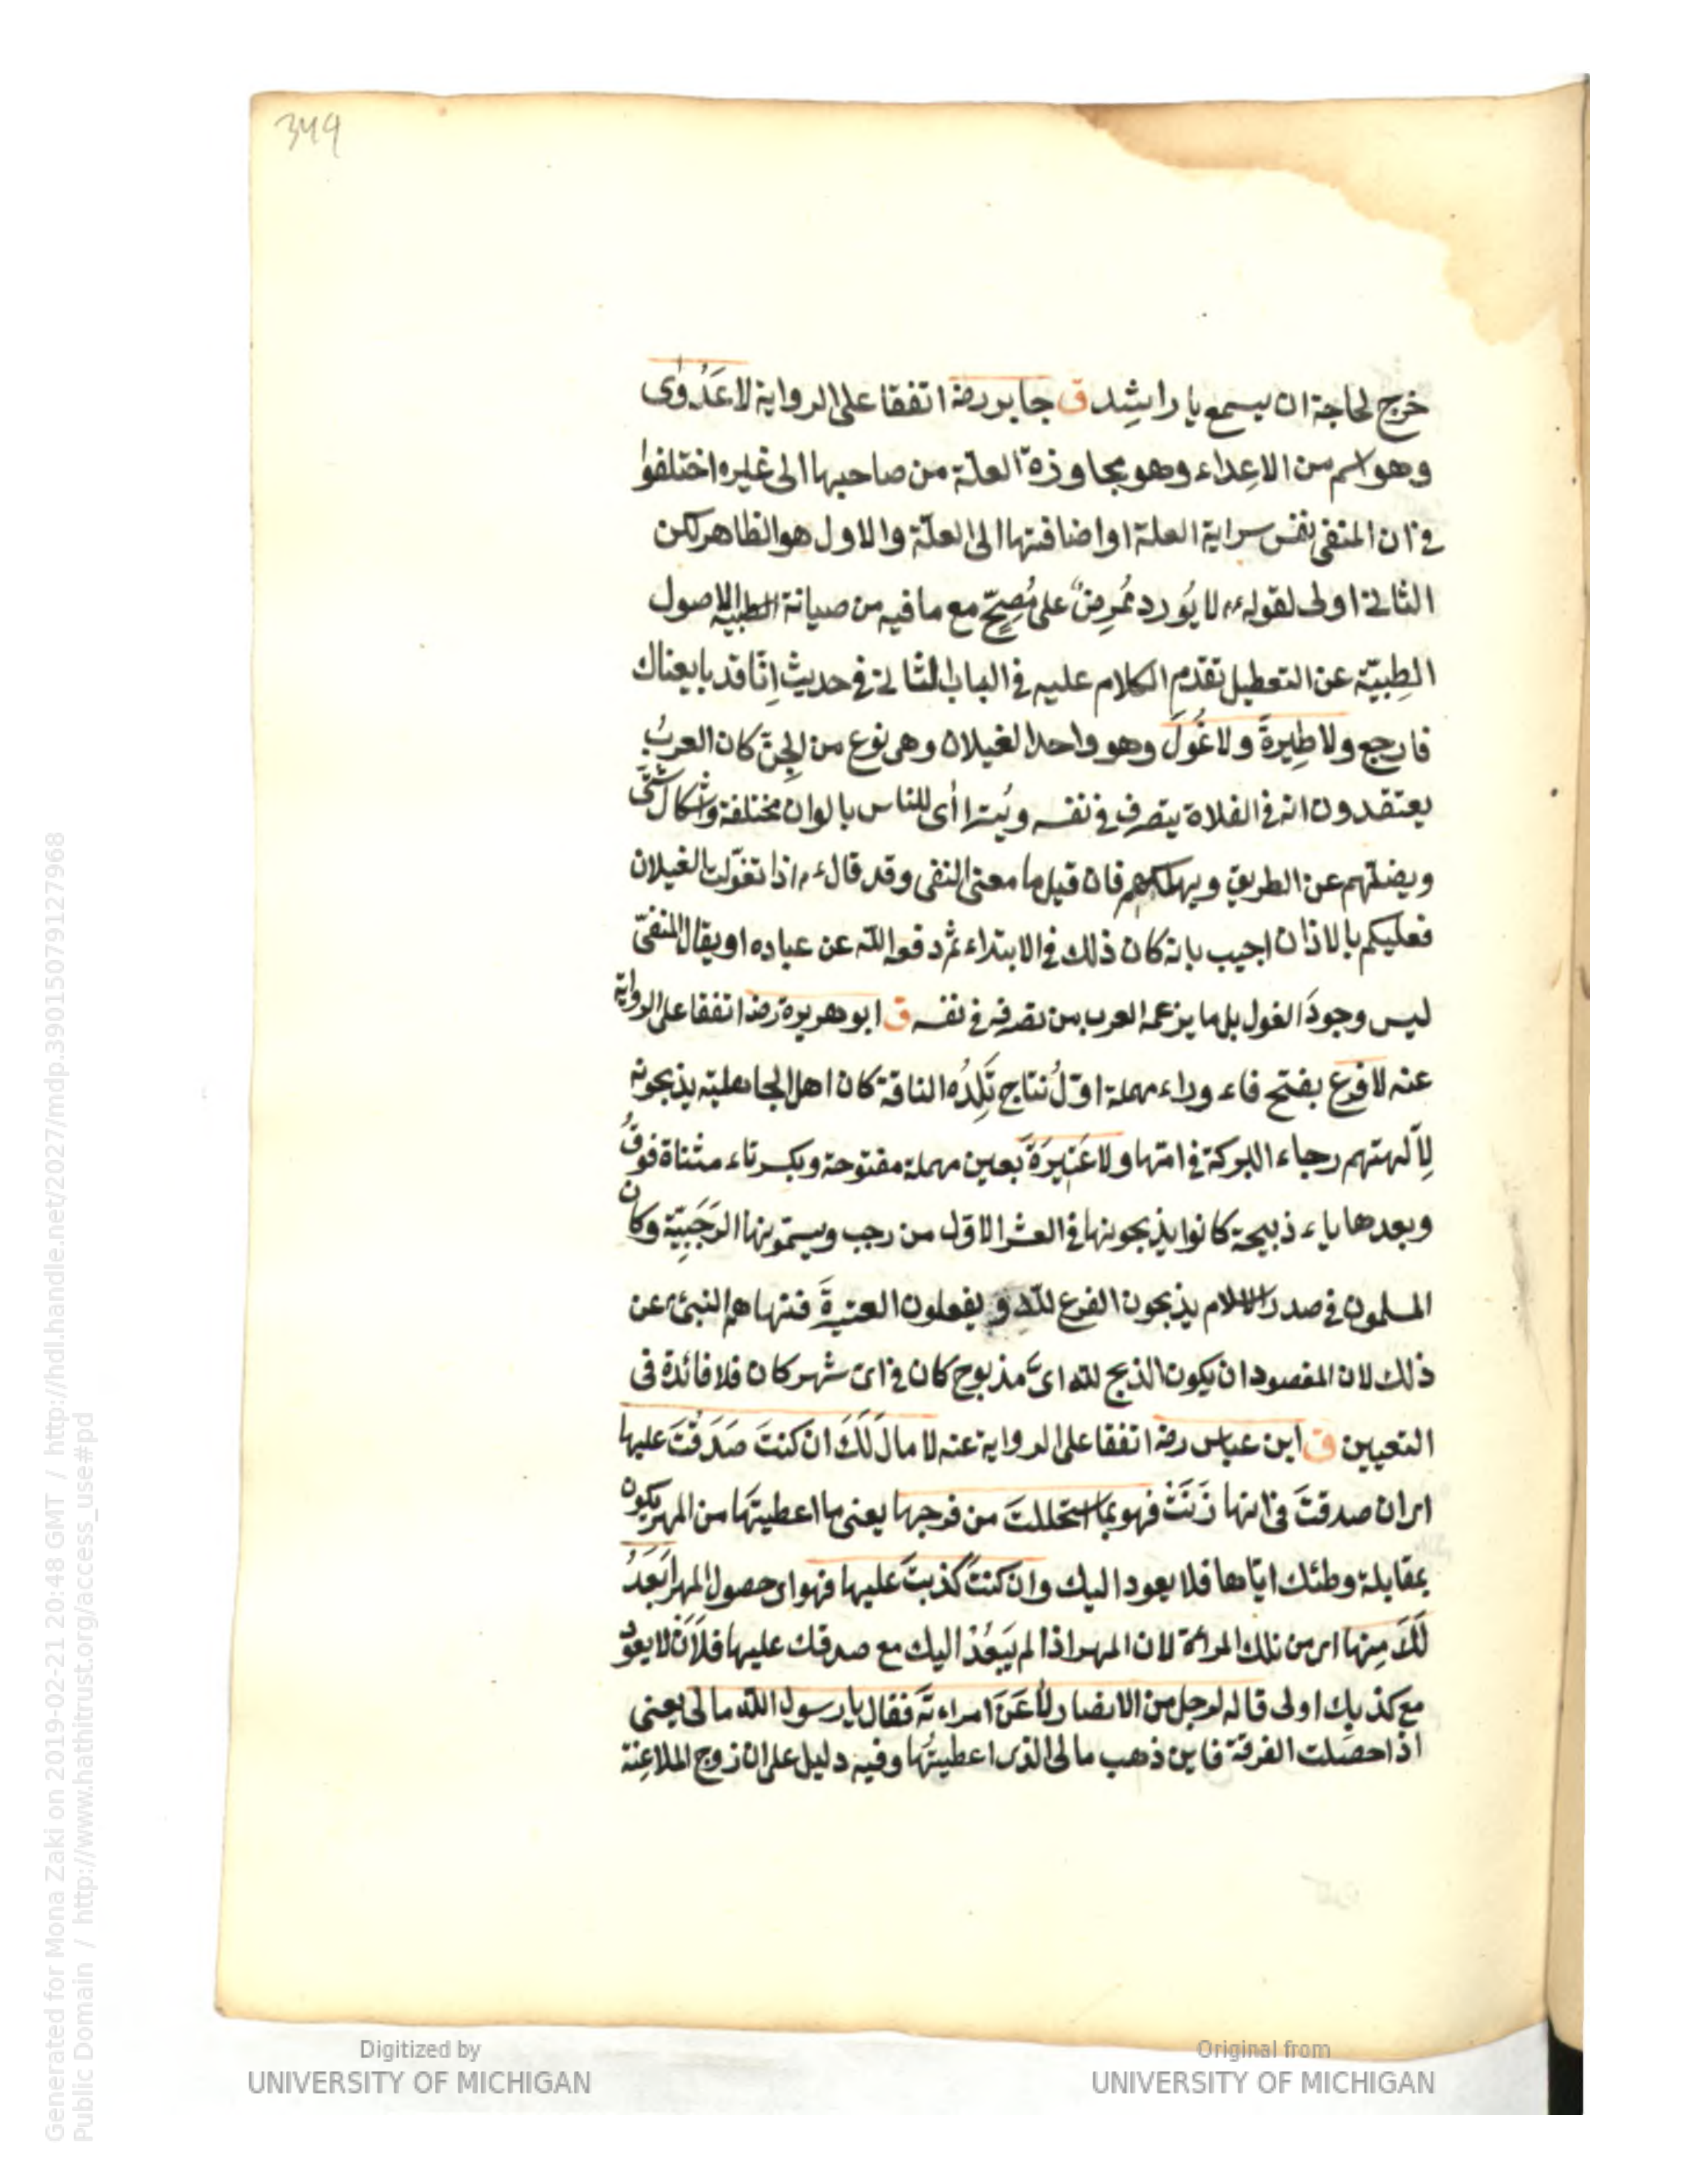 349
خرج لحاجة ان يسمع يا راشِد ق جابر رضه اتفقا على الرواية لا عَدْوٰى
وهو اسم من الاعِداء وهو مجاوزة العلّة من صاحبها الى غيره اختلفوا
في ان المنفى نفس سراية العلة او اضافتها الى العلّة والاول هو الظاهر لكن
الثانى اولى لقوله ءم لا يُورد مُمرِضٌ على مُصِحّ مع ما فيه من صيانة الاصول
الطِبيّة عن التعطيل تقدّم الكلام عليه في الباب الثانى في حديث اِنّا قد بايعناك
فارجع ولا طِيرةَ ولا غُولَ وهو واحد الغيلان وهى نوع من الجِنّ كان العربُ
يعتقدون انه في الفلاة يتصرف في نفسه ويُتراأى للناس بالوان مختلفة واشكال شتّى
ويضلّهم عن الطريق ويهلكهم فان قيل ما معنى النفى وقد قال ءم اذا تغوّلت الغيلان
فعليكم بالاذان اجيب بانه كان ذلك في الابتداء ثم دفعه الله عن عباده او يقال المنفىّ
ليس وجودَ الغول بل ما يزعمه العرب من تصرفه في نفسه ق ابو هريرة رضه اتفقا على الرواية
عنه لا فرع بفتح فاء وراء مهملة اوّلُ نتاج تَلِدُه الناقة كان اهل الجاهلية يذبحونه
لِآلهتهم رجاء البركة في امّها ولا عَتِيرَةَ بعين مهملة مفتوحة وبكسر تاء مثناة فوقُ
وبعدها ياء ذبيحة كانوا يذبحونها في العشر الاوّل من رجب ويسمّونها الرَجَبِيّة وكان
المسلمون في صدر الاسلام يذبحون الفرع لله و يفعلون العتيرةَ فنهاهم النبىّ ءم عن
ذلك لان المقصود ان يكون الذبح لله اىَّ مذبوح كان في اىّ شهر كان فلا فائدة فى
التعيين ق ابن عباس رضه اتفقا على الرواية عنه لا مالَ لَكَ ان كنتَ صَدَقْتَ عليها
اى ان صدقتَ فى انها زَنَتْ فهو بما استحللتَ من فرجها يعنى ما اعطيتَها من المهر يكون
بمقابلة وطئك ايّاها فلا يعود اليك وان كنتَ كذبتَ عليها فهو اى حصول المهر اَبْعَدُ
لَكَ مِنها اى من تلك المرائة لان المهر اذا لم يَعُدْ اليك مع صدقك عليها فلَاَنْ لا يعود
مع كذبِك اولى قاله لرجل من الانصار لَاعَنَ امراءته فقال يا رسول الله مالى يعنى
اذا حصَلت الفرقة فاين ذهب مالى الذى اعطيتُها وفيه دليل على ان زوج الملاعِنة
Digitized by
UNIVERSITY OF MICHIGAN
Original from
UNIVERSITY OF MICHIGAN
Generated for Mona Zaki on 2019-02-21 20:48 GMT / http://hdl.handle.net/2027/mdp.39015079127968
Public Domain / http://www.hathitrust.org/access_use#pd